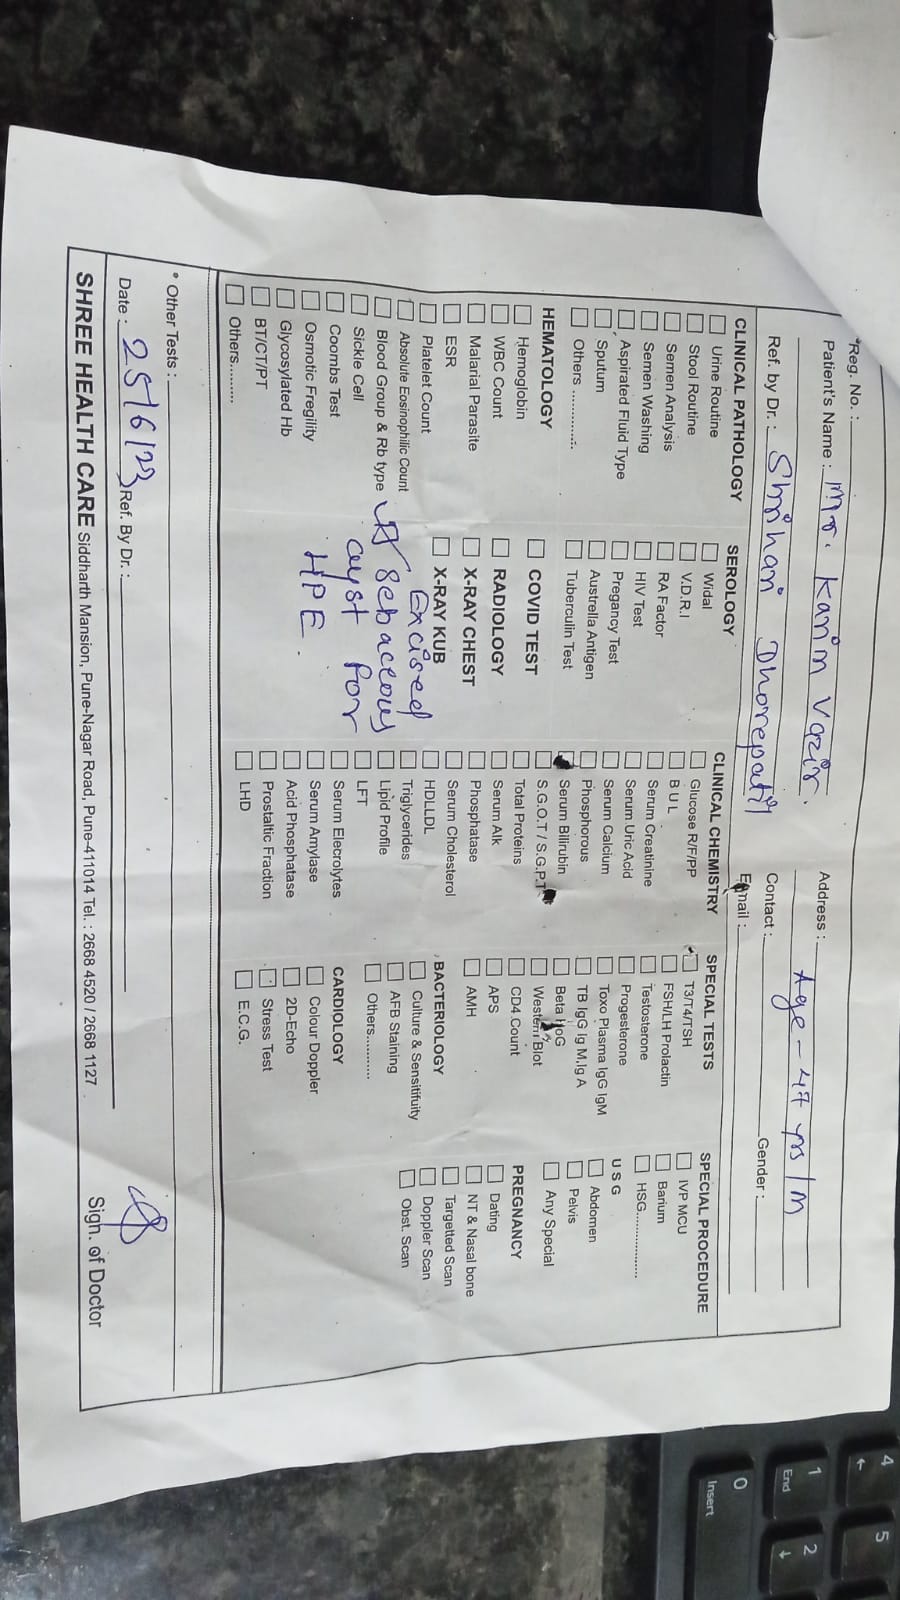 *Reg. No. :
Patient's Name : Mr. Karim Vazir.
Address : Age - 47 yrs / M
Ref. by Dr. : Shrihari Dhorepatil
Contact :
Gender :
Email :
CLINICAL PATHOLOGY
Urine Routine
Stool Routine
Semen Analysis
Semen Washing
Aspirated Fluid Type
Sputum
Others .............
HEMATOLOGY
Hemoglobin
WBC Count
Malarial Parasite
ESR
Platelet Count
Absolute Eosinophilic Count
Blood Group & Rb type
Sickle Cell
Coombs Test
Osmotic Fregility
Glycosylated Hb
BT/CT/PT
Others.........
SEROLOGY
Widal
V.D.R.I
RA Factor
HIV Test
Pregancy Test
Austrella Antigen
Tuberculin Test
COVID TEST
RADIOLOGY
X-RAY CHEST
X-RAY KUB
Excised
Sebaceous
cyst for
HPE.
CLINICAL CHEMISTRY
Glucose R/F/PP
B U L
Serum Creatinine
Serum Uric Acid
Serum Calcium
Phosphorous
Serum Bilirubin
S.G.O.T / S.G.P.T
Total Proteins
Serum Alk
Phosphatase
Serum Cholesterol
HDLLDL
Triglycerides
Lipid Profile
LFT
Serum Elecrolytes
Serum Amylase
Acid Phosphatase
Prostaltic Fraction
LHD
SPECIAL TESTS
T3/T4/TSH
FSH/LH Prolactin
Testosterone
Progesterone
Toxo Plasma IgG IgM
TB IgG Ig M.Ig A
Beta HoG
Western Blot
CD4 Count
APS
AMH
BACTERIOLOGY
Culture & Sensitifuity
AFB Staining
Others..........
CARDIOLOGY
Colour Doppler
2D-Echo
Stress Test
E.C.G.
SPECIAL PROCEDURE
IVP MCU
Barium
HSG...............
U S G
Abdomen
Pelvis
Any Special
PREGNANCY
Dating
NT & Nasal bone
Targetted Scan
Doppler Scan
Obst. Scan
* Other Tests :
Date : 25/6/23 Ref. By Dr. :
Sign. of Doctor
SHREE HEALTH CARE Siddharth Mansion, Pune-Nagar Road, Pune-411014 Tel. : 2668 4520 / 2668 1127
4
5
1
End
2
0
Insert